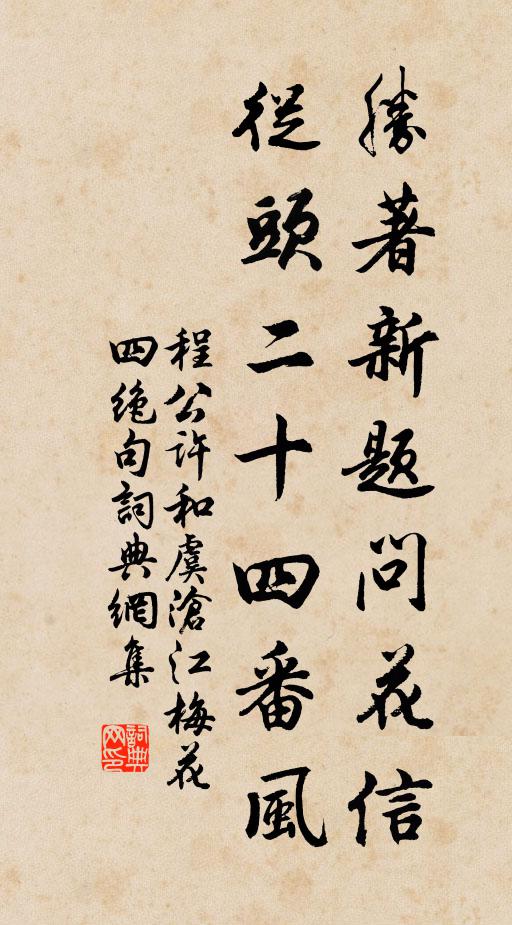 勝著新題問花信
從頭二十四番風
程公許和虞滄江梅花
四絶句詞典網集
詞典网印